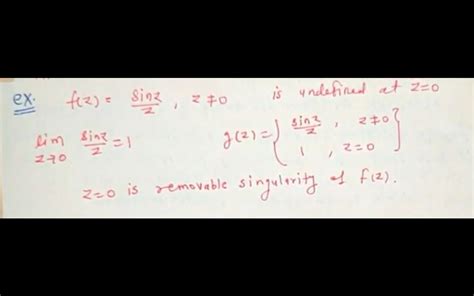 ex. f(z) = sinz/z , z≠0 is undefined at z=0
lim z→0 sinz/z = 1 g(z) = { sinz/z , z≠0
1 , z=0 }
z=0 is removable singularity of f(z).